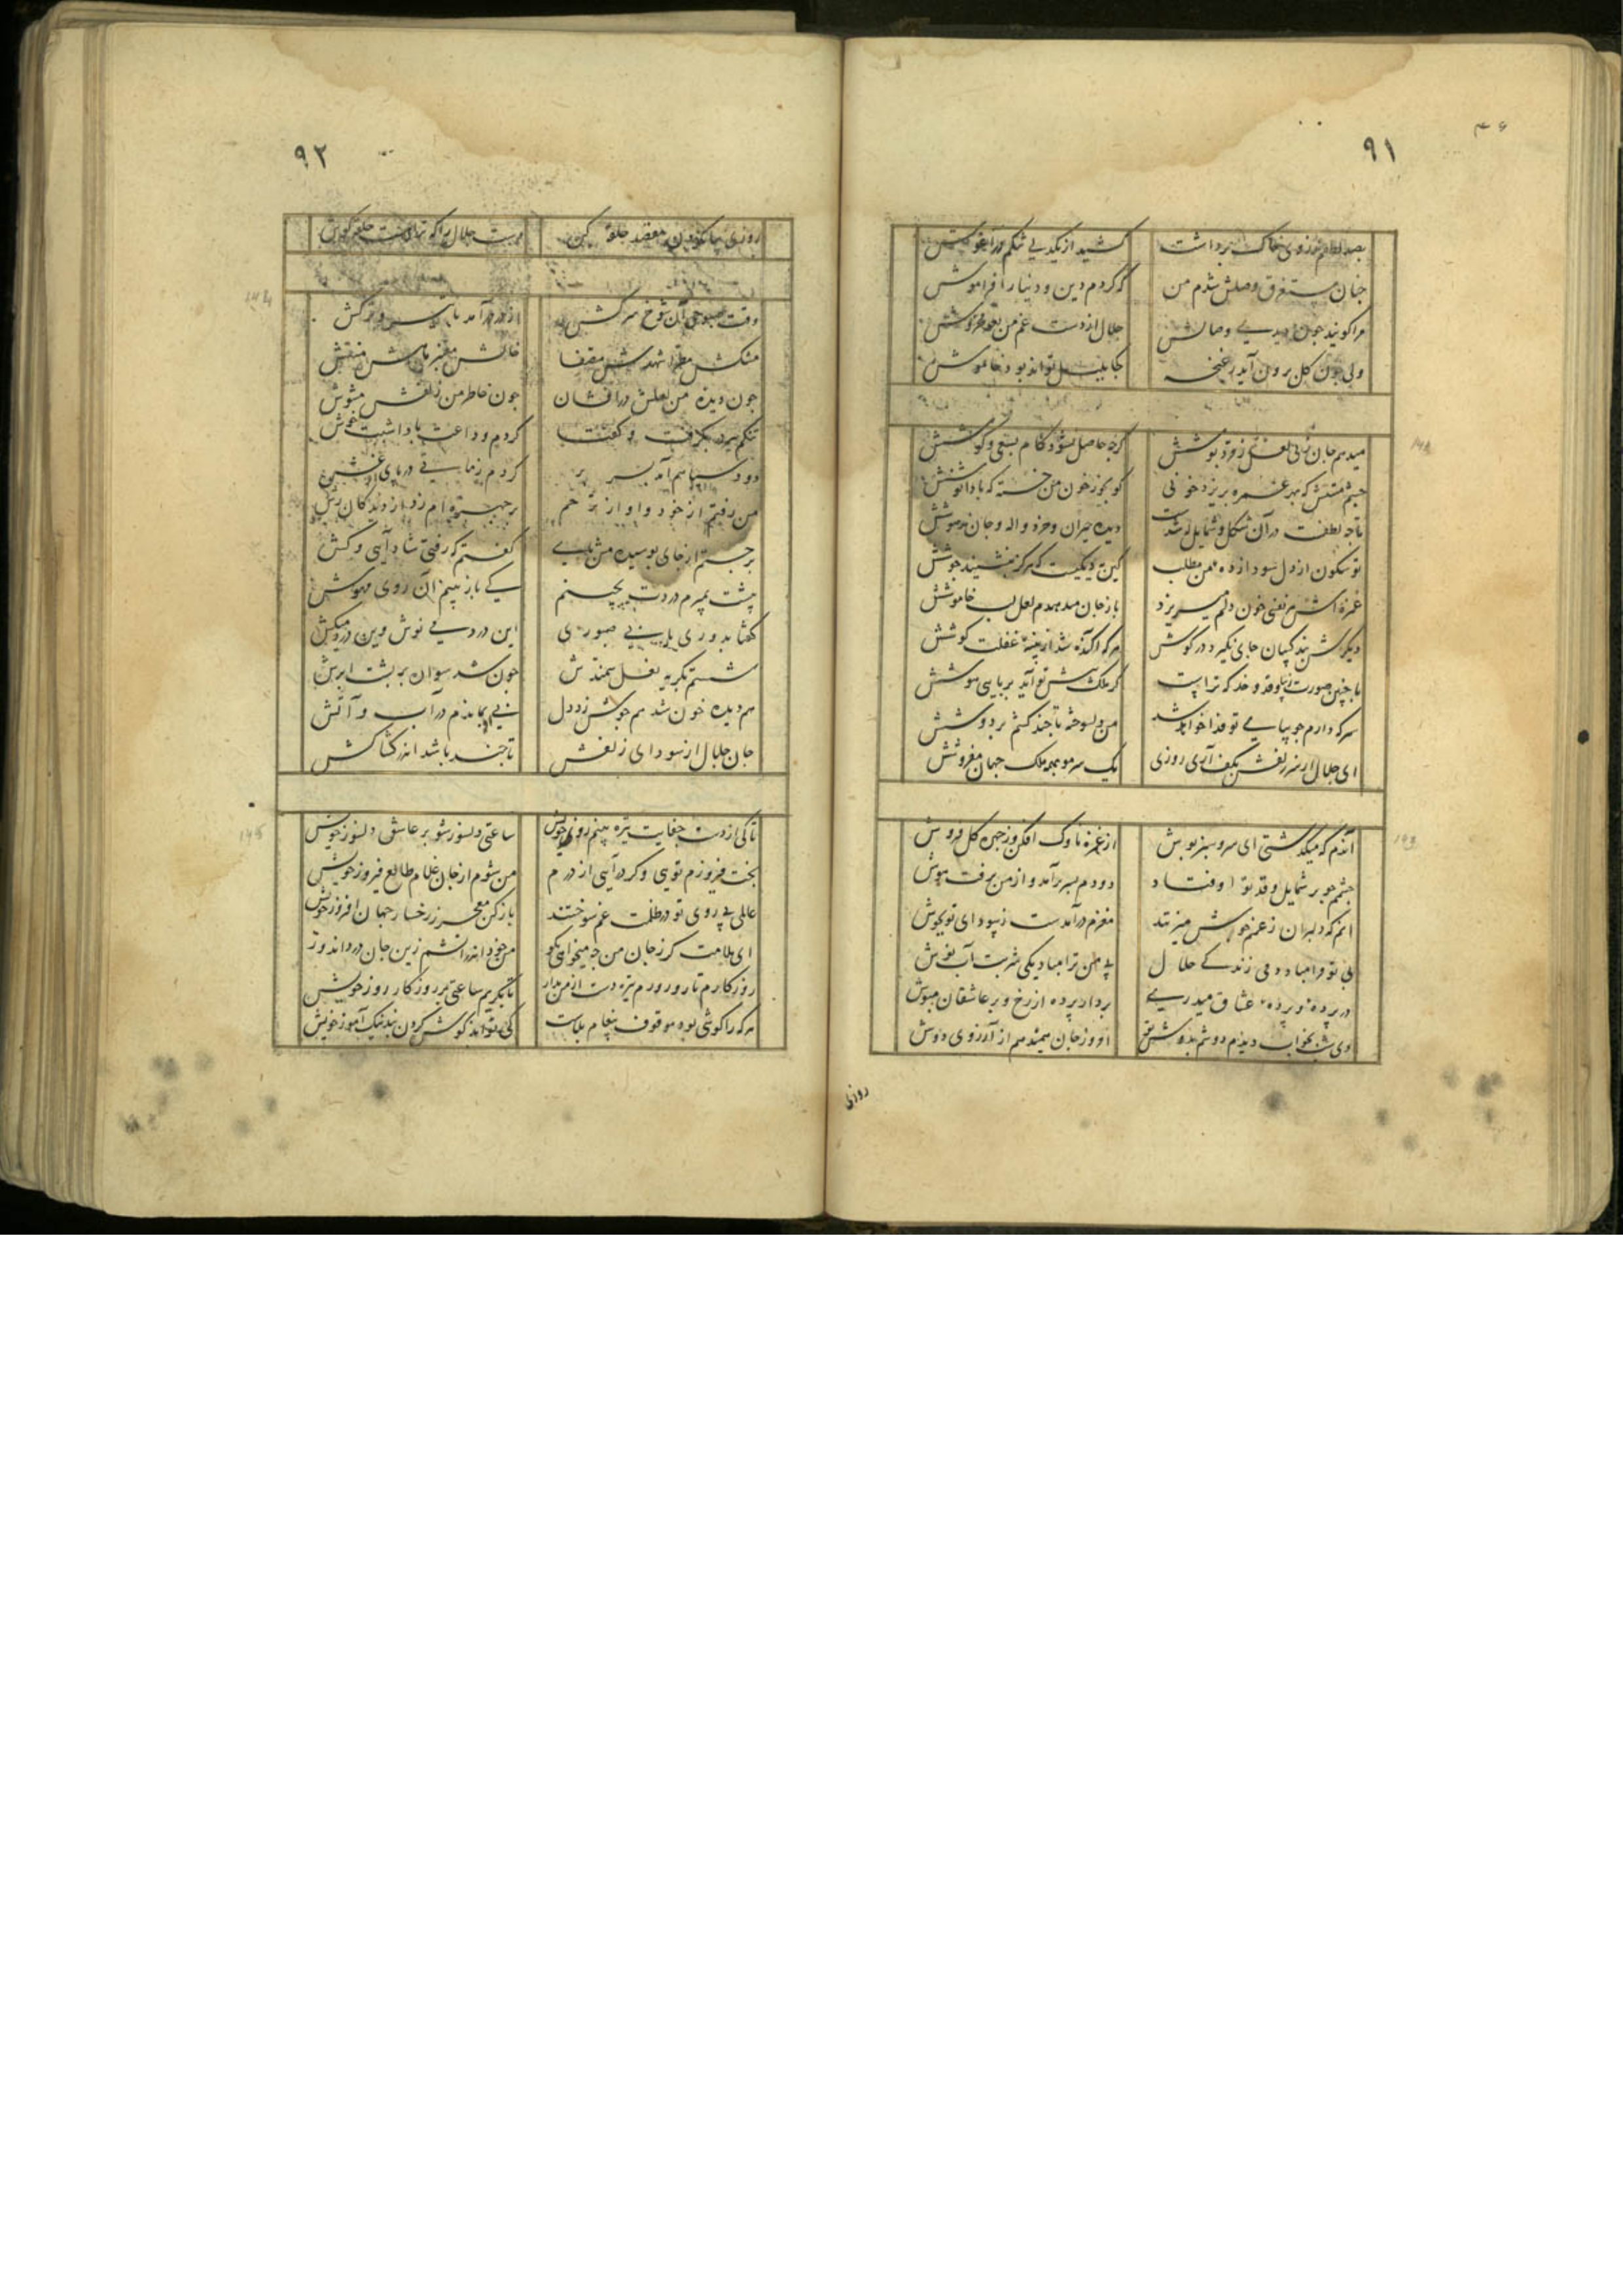 ۹۱
بصد لطفم ز روی خاک برداشت
کشید از یکدلی تنگم در آغوش
جنان مستغرق وصلش شدم من
که کردم دین و دنیا را فراموش
مرا کویند جون دیدی وصالش
جلال از دست غم من بعد مخروش
ولی جون کل برون آید ز غنجه
کجا بلبل تواند بود خاموش
میدهم جان
کرجه حاصل نشود کام بسعی و کوشش
جشم مستش که بهر غمزه بریزد خونی
کو بخور خون من خسته که بادا نوشش
تا جه لطفست در آن شکل و شمایل
دیده حیران و خرد واله و جان مدهوشش
تو سکون از دل سودازده من مطلب
کین نه دیکیست که هرکز بنشیند جوشش
غمزه اش هر نفسی خون دلم میریزد
باز جان میدهدم لعل لب خاموشش
دیکرش پند کسان جای نکیرد در کوش
هر که آکنده شد از پنبه غفلت کوشش
با جنین صورت زیبا و قد و خد که تراست
کر ملک پیش تو آید بربایی هوشش
سر که دارم جو بپای تو فدا خواهد شد
من دلسوخته تا جند کشم بر دوشش
ای جلال ار سر زلفش بکف آری روزی
یک سر مو بهمه ملک جهان مفروشش
آندم که میکذشتی ای سرو سبز پوش
از غمزه ناوک افکن و ز جهره کل فروش
جشمم جو بر شمایل و قد تو اوفتاد
دودم بسر برآمد و از من برفت هوش
مغزم در آمدست ز سودای تو بجوش
بی تو مرا مباد دمی زندکی حلال
بی من ترا مباد یکی شربت آب نوش
در پرده و پرده عشاق میدری
بردار پرده از رخ و بر عاشقان مپوش
دی شب بخواب دیدم دوشم بدوش تو
امروز جان همیدهم از آرزوی دوش
روزی
۹۲
وقت صبوحی آن شوخ سرکش
از در درآمد با ترک و ترکش
مشکش مطرا شهدش مصفا
خالش معنبر ماهش منقش
جون دیده من لعلش درافشان
جون خاطر من زلفش مشوش
تنکم ببر در بکرفت و کفتا
کردم وداعت باد اشبت خوش
دود سیاهم آمد بسر بر
کردم زمانی در پای او غش
من رفتم از خود و او از ترحم
بر جهره ام زد از دیدکان رش
برجستم از جای بوسیدمش پای
کفتم که رفتی شاد آیی و کش
پیشت بمیرم دردت بچینم
کی باز بینم آن روی مهوش
کفتا بدوری باید صبوری
این درد می نوش وین درد میکش
شستم بکریه نعل سمندش
جون شد سوار بر پشت ابرش
هم دیده خون شد هم جوش زد دل
نی نی بماندم در آب و آتش
جان جلال از سودای زلفش
تا جند باشد اندر کشاکش
تا کی از دست جفایت تیره بینم روز خویش
ساعتی دلسوز شو بر عاشق دلسوز خویش
بخت فیروزم تویی و کر در آیی از درم
من شوم از جان غلام طالع فیروز خویش
عالمی بی روی تو در ظلمت غم سوختند
باز کن معجر ز رخسار جهان افروز خویش
ای ملامت کر ز جان من جه میخواهی بکو
روزکارم تار و روزم تیره دست از من بدار
تا بکریم ساعتی بر روزکار و روز خویش
هر که را کوشی بود موقوف پیغام بلاست
کی تواند کوش کردن پند نیک آموز خویش